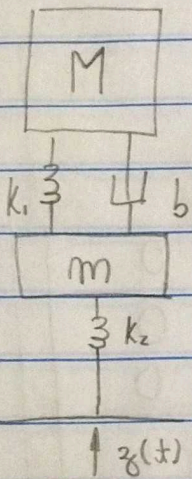 M
k₁ b
m
k₂
z(t)